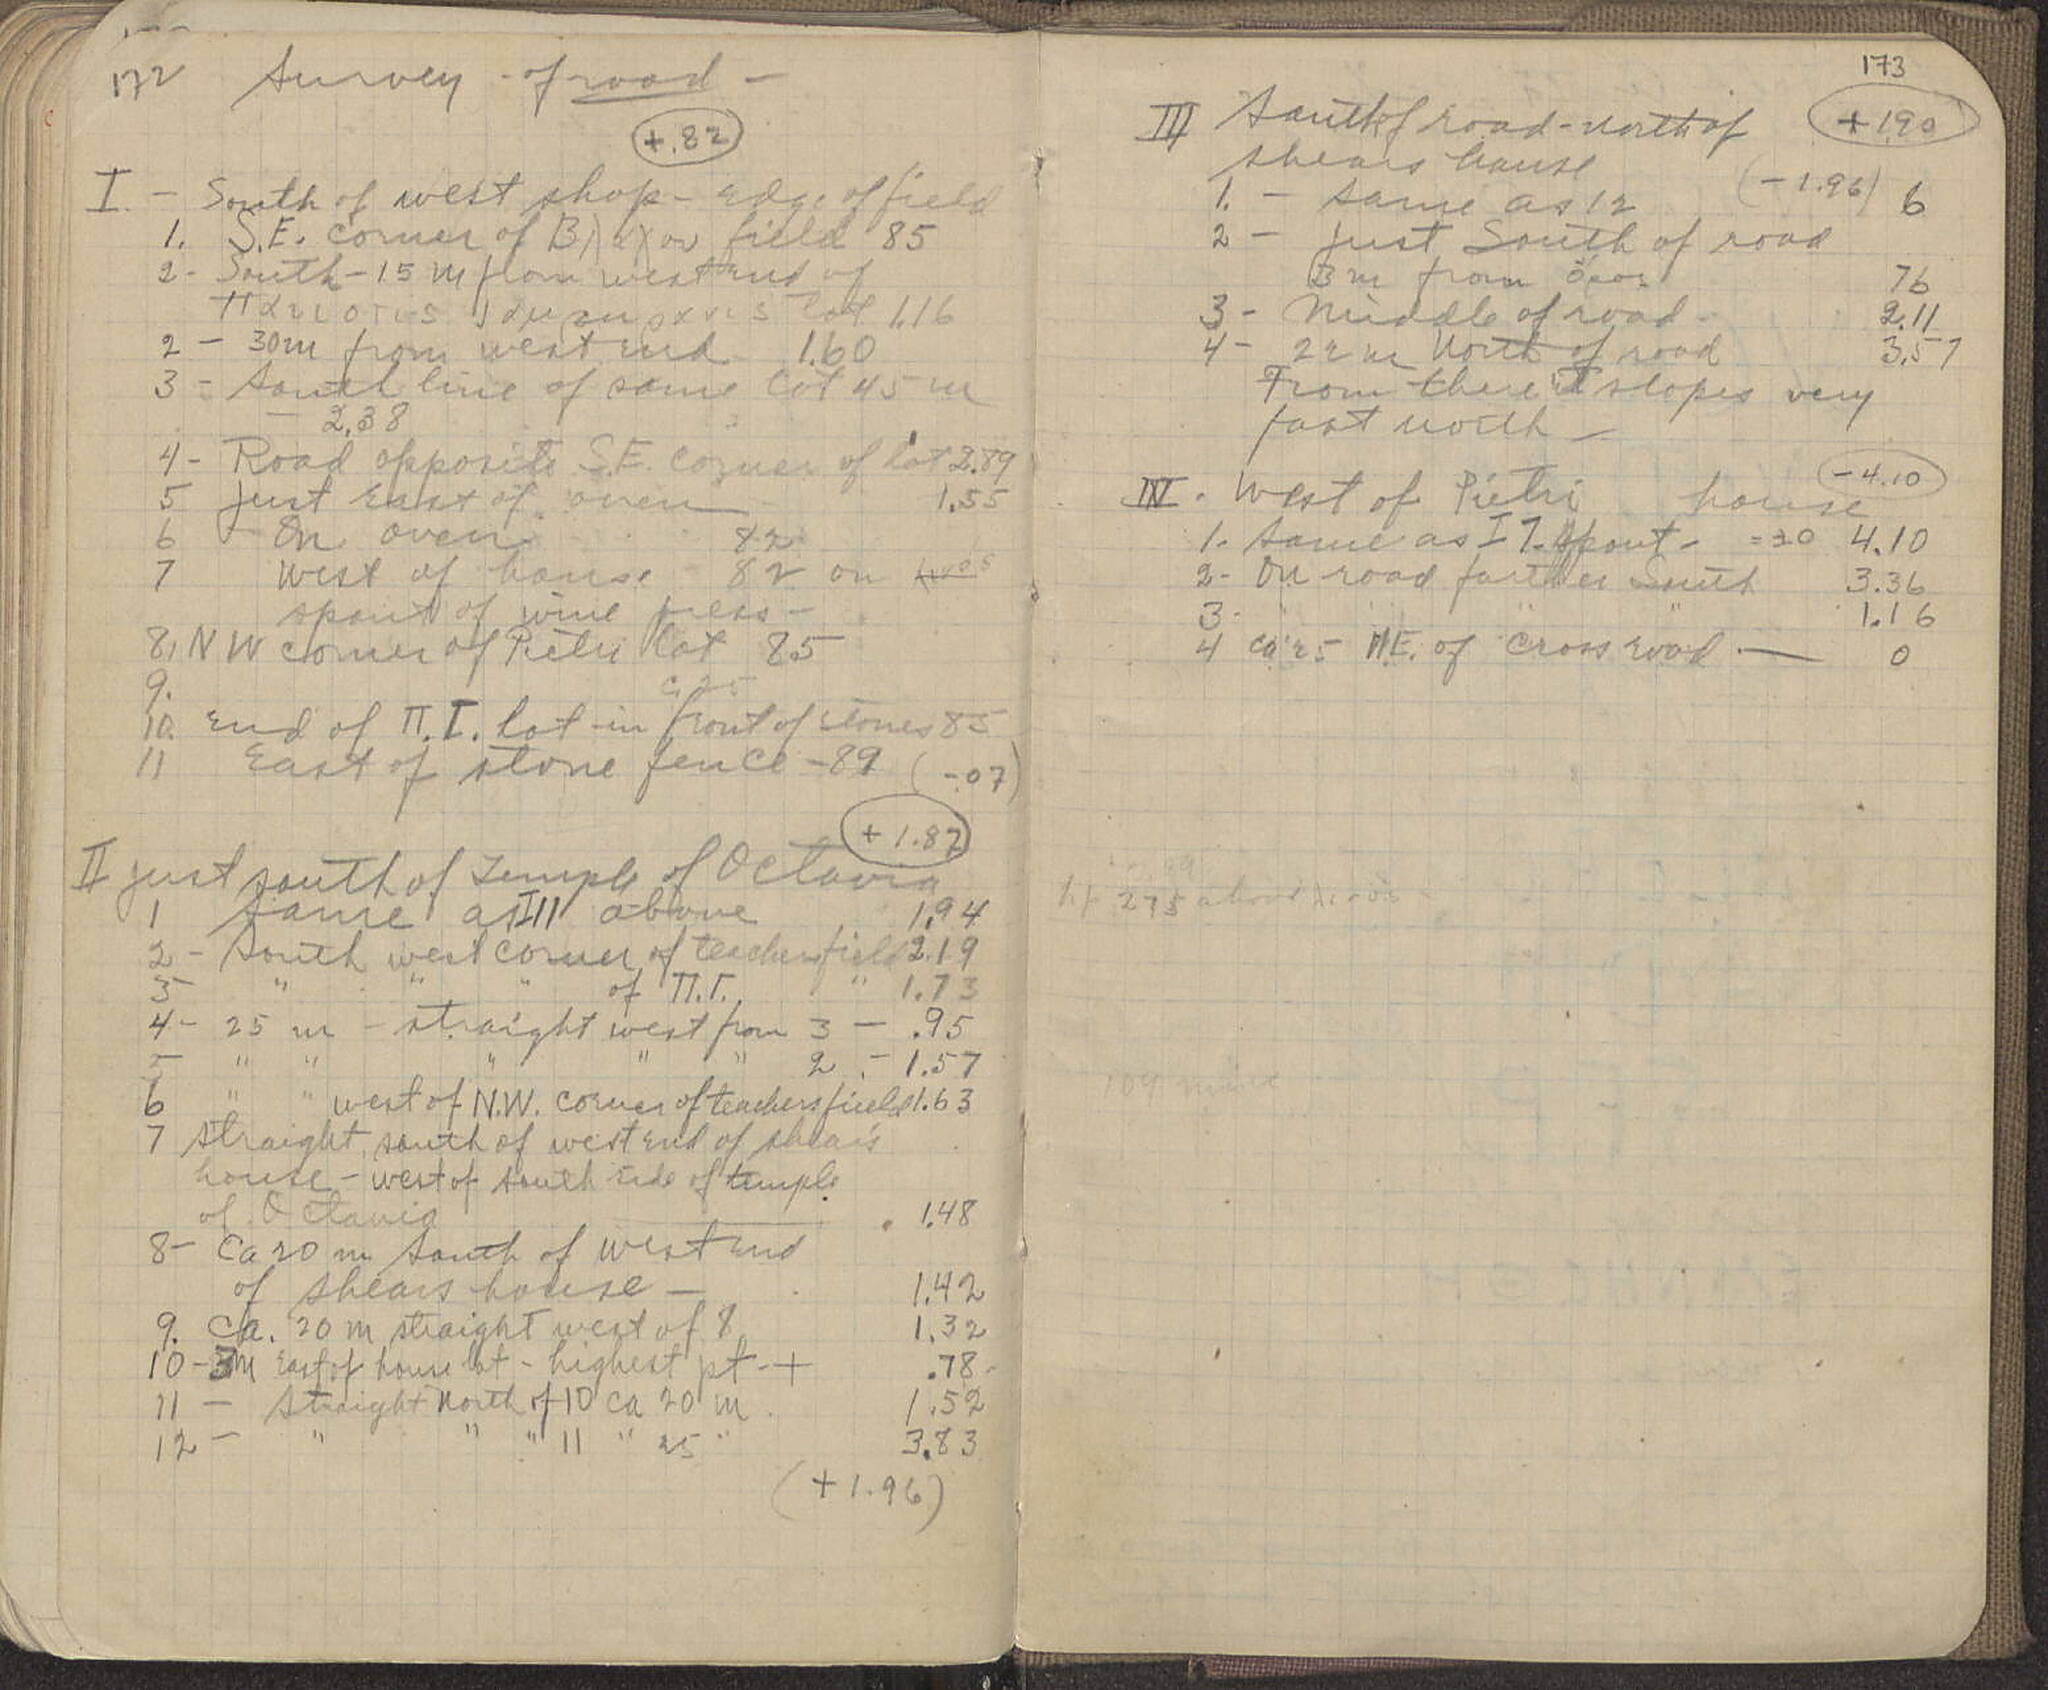 172 Survey of road -
+.82
I. - South of west shop - Edge of field
1. S.E. corner of field 85
2 - South - 15 m from west end of
lot 1.16
2 - 30m from west end 1.60
3 - South line of same lot 45 m
- 2.38
4 - Road opposite S.E. corner of lot 2.89
5 just East of oven 1.55
6 - On oven 82
7 West of house 82 on
spout of wine press -
8. NW corner of Pietri lot 85
9.
10. End of Π.Γ. lot - in front of stones 85
11 East of stone fence - 89 (-.07)
+1.87
II just south of Temple of Octavia
1 Same as I 11 above 1.94
2 - South west corner of teachers field 2.19
3 " " " of Π.Γ. " 1.73
4 - 25 m - straight west from 3 - .95
5 " " " " " 2 - 1.57
6 " " west of N.W. corner of teachers field 1.63
7 straight south of west end of shear's
house - west of south side of temple
of Octavia 1.48
8 - Ca 20 m South of west end
of shears house - 1.42
9. Ca. 20 m straight west of 8 1.32
10 - 3m East of house lot - highest pt - + .78 -
11 - Straight North of 10 ca 20 m. 1.52
12 - " " " 11 " 25 " 3.83
(+1.96)
173
III South of road - north of +1.90
shears house
1. - Same as 12 (-1.96) 6
2 - just South of road
3m from 76
3 - Middle of road - 2.11
4 - 22 m North of road 3.57
From there it slopes very
fast north -
-4.10
IV. West of Pietri house
1. Same as I 7. Spout - = ±0 4.10
2 - On road farther South 3.36
3. " " " " 1.16
4 ca 25 NE. of cross road - 0
275 above
109